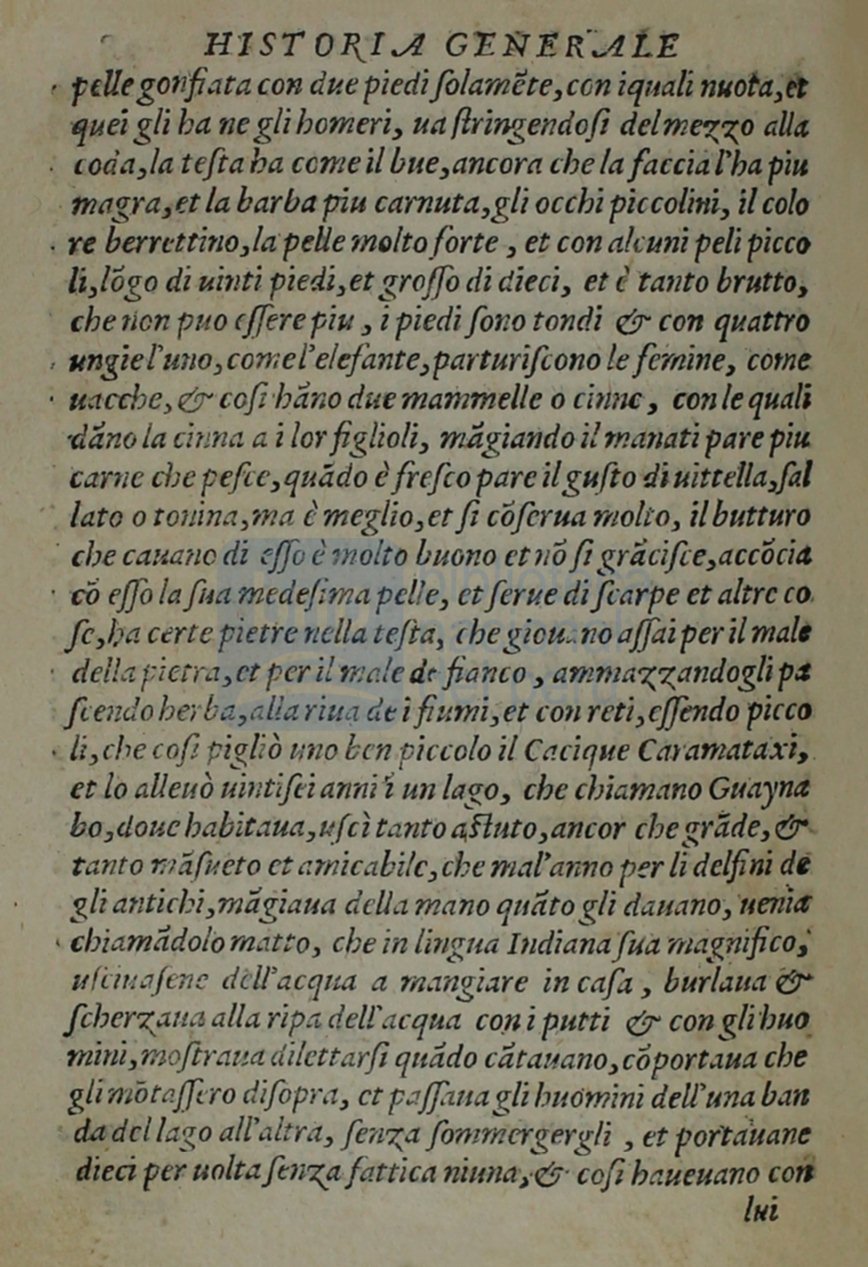 HISTORIA GENERALE
pelle gonfiata con due piedi ſolamẽte, con iquali nuota, et
quei gli ha ne gli homeri, ua ſtringendoſi del mezzo alla
coda, la teſta ha come il bue, ancora che la faccia l'ha piu
magra, et la barba piu carnuta, gli occhi piccolini, il colo
re berrettino, la pelle molto forte, et con alcuni peli picco
li, lõgo di uinti piedi, et groſſo di dieci, et è tanto brutto,
che non puo eſſere piu, i piedi ſono tondi & con quattro
ungie l'uno, come l'elefante, parturiſcono le femine, come
uacche, & coſi hãno due mammelle o cinne, con le quali
dãno la cinna a i lor figlioli, mãgiando il manati pare piu
carne che peſce, quãdo è freſco pare il guſto di uittella, ſal
lato o tonina, ma è meglio, et ſi cõſerua molto, il butturo
che cauano di eſſo è molto buono et nõ ſi grãciſce, accõcia
cõ eſſo la ſua medeſima pelle, et ſerue di ſcarpe et altre co
ſe, ha certe pietre nella teſta, che giouano aſſai per il male
della pietra, et per il male de fianco, ammazzandogli pa
ſcendo herba, alla riua de i fiumi, et con reti, eſſendo picco
li, che coſi pigliò uno ben piccolo il Cacique Caramataxi,
et lo alleuò uintiſei anni ĩ un lago, che chiamano Guayna
bo, doue habitaua, uſcì tanto aſtuto, ancor che grãde, &
tanto mãſueto et amicabile, che mal'anno per li delfini de
gli antichi, mãgiaua della mano quãto gli dauano, uenia
chiamãdolo matto, che in lingua Indiana ſua magnifico,
uſciuaſene dell'acqua a mangiare in caſa, burlaua &
ſcherzaua alla ripa dell'acqua con i putti & con gli huo
mini, moſtraua dilettarſi quãdo cãtauano, cõportaua che
gli mõtaſſero diſopra, et paſſaua gli huomini dell'una ban
da del lago all'altra, ſenza ſommergergli, et portauane
dieci per uolta ſenza fattica niuna, & coſi haueuano con
lui